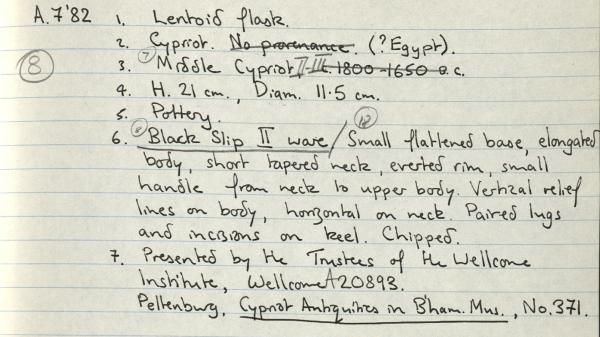 A.7'82 1. Lentoid flask.
2. Cypriot. No provenance. (?Egypt).
⑧ 3. ⑦ Middle Cypriot II-III. 1800-1650 B.C.
4. H. 21 cm., Diam. 11.5 cm.
5. Pottery.
6. Black Slip II ware / Small flattened base, elongated
body, short tapered neck, everted rim, small
handle from neck to upper body. Vertical relief
lines on body, horizontal on neck. Paired lugs
and incisions on keel. Chipped.
7. Presented by the Trustees of the Wellcome
Institute, Wellcome A20893.
Peltenburg, Cypriot Antiquities in B'ham. Mus., No. 371.